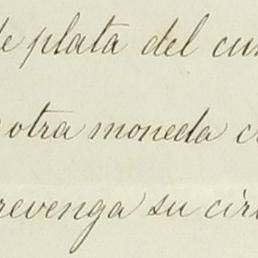 de plata del cu
otra moneda c
revenga su cir